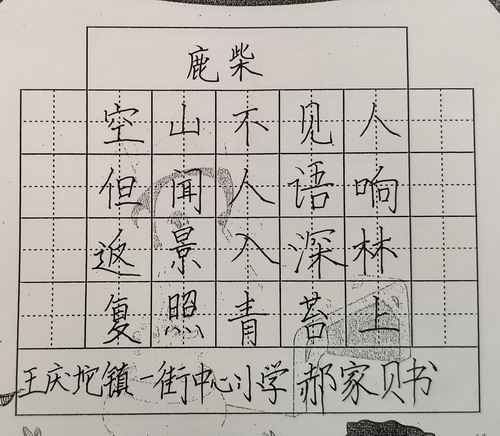 鹿柴
空山不见人
但闻人语响
返景入深林
复照青苔上
王庆坨镇一街中心小学 郝家贝书